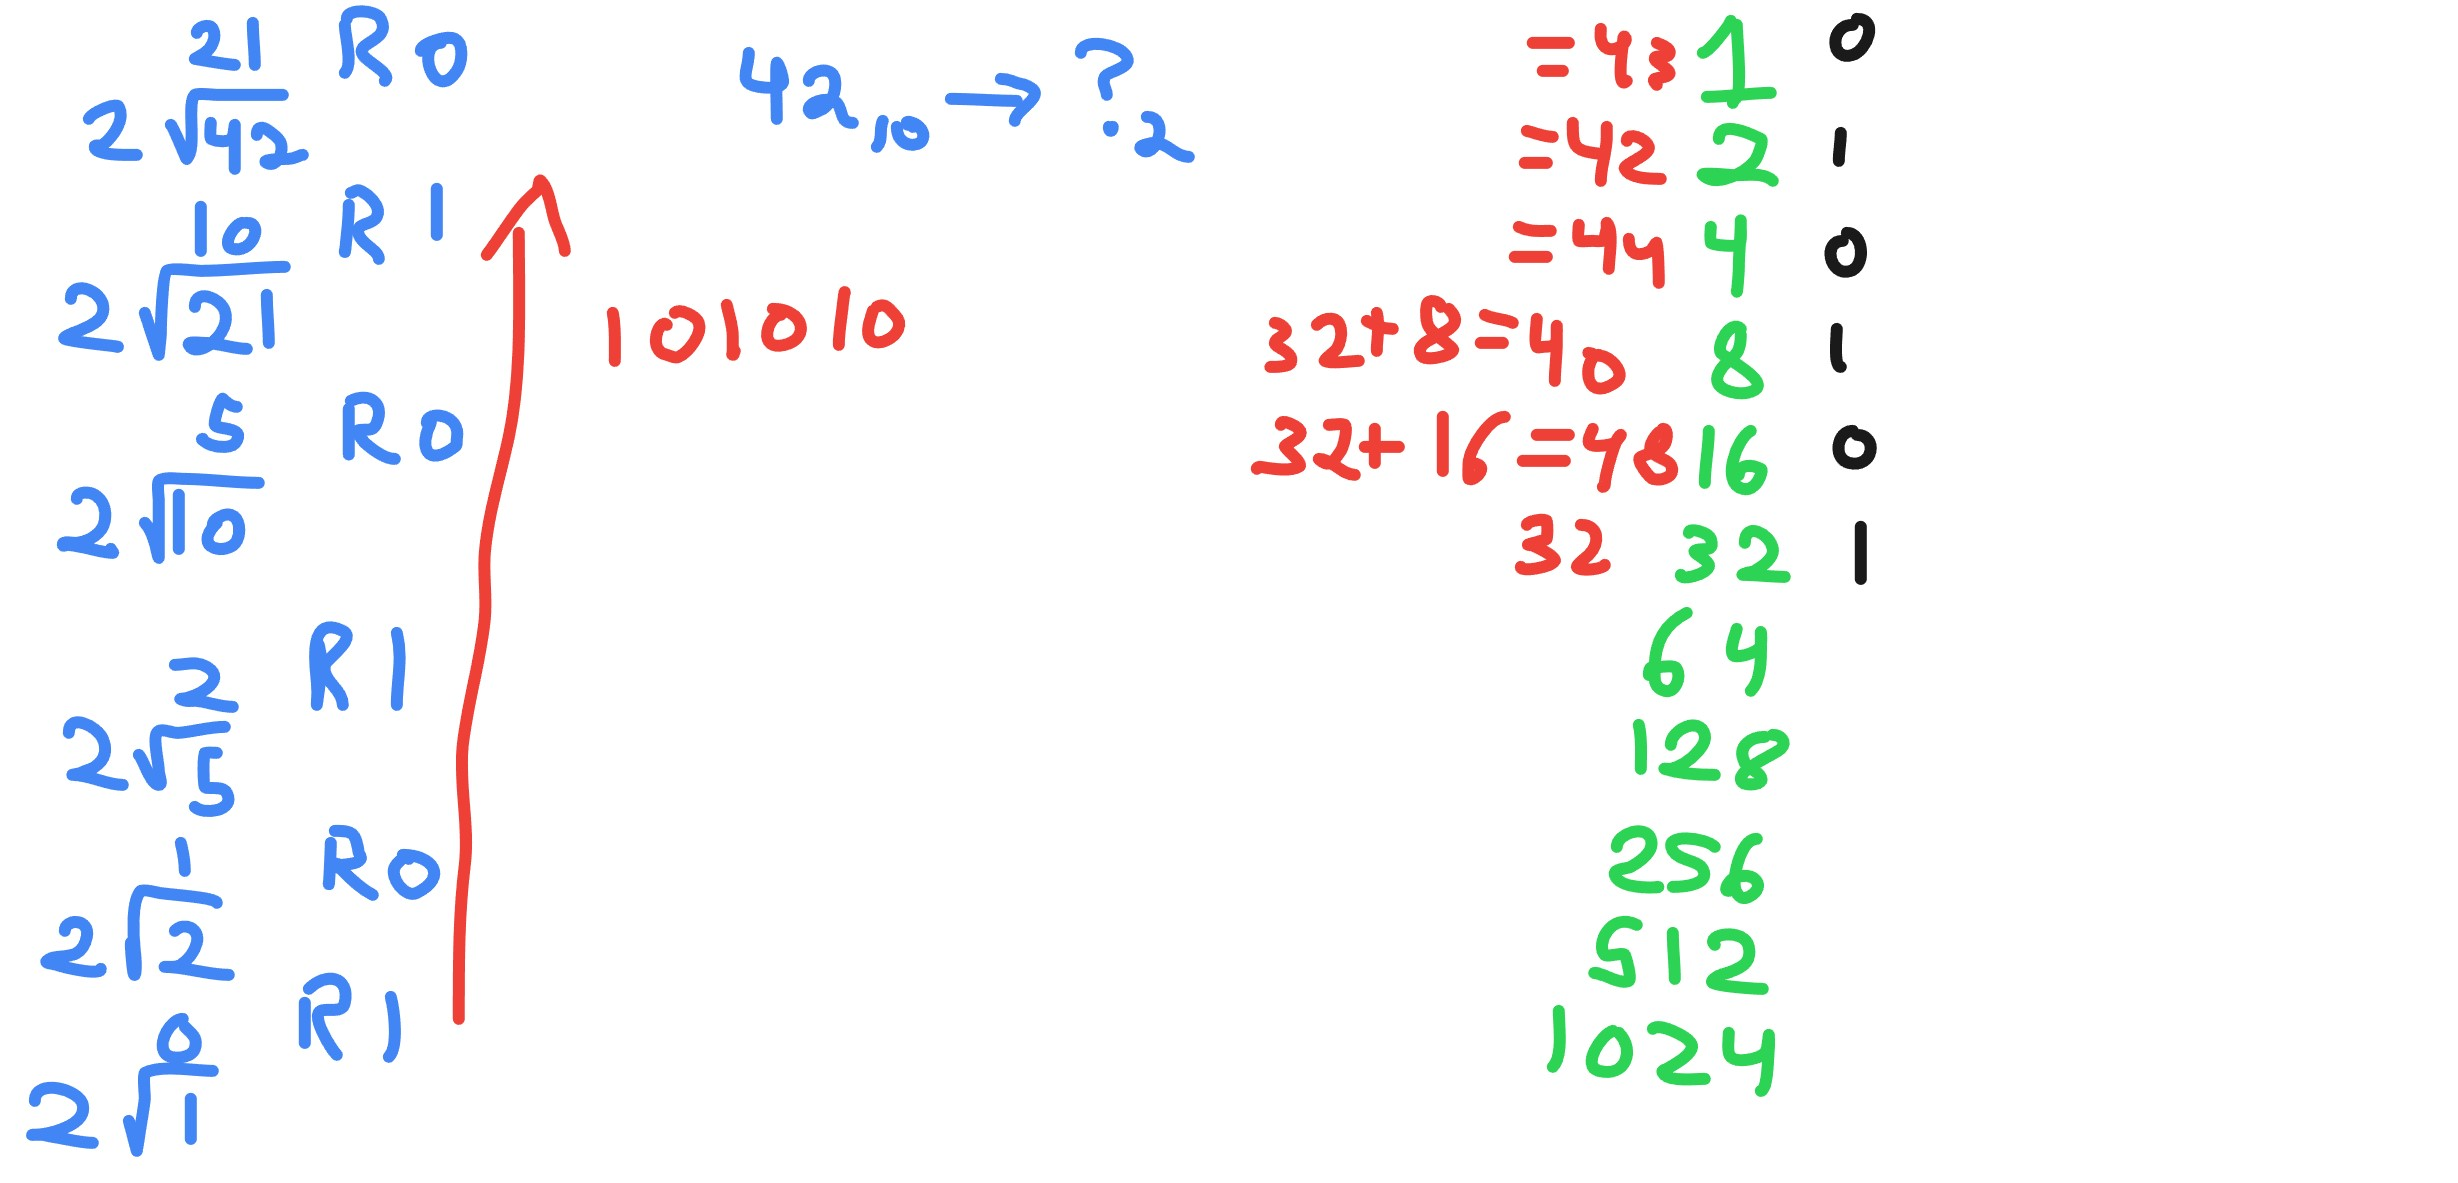 21 R 0
2 √42
10 R 1
2 √21
5 R 0
2 √10
2 R 1
2 √5
1 R 0
2 √2
0 R 1
2 √1
42₁₀ → ?₂
101010
= 43 1 0
= 42 2 1
= 44 4 0
32+8=40 8 1
32+16=48 16 0
32 32 1
64
128
256
512
1024